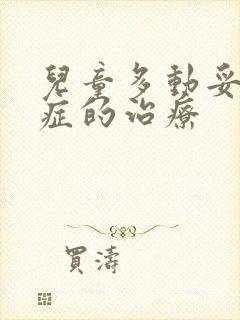 兒童多動妥
症的治療
買濤